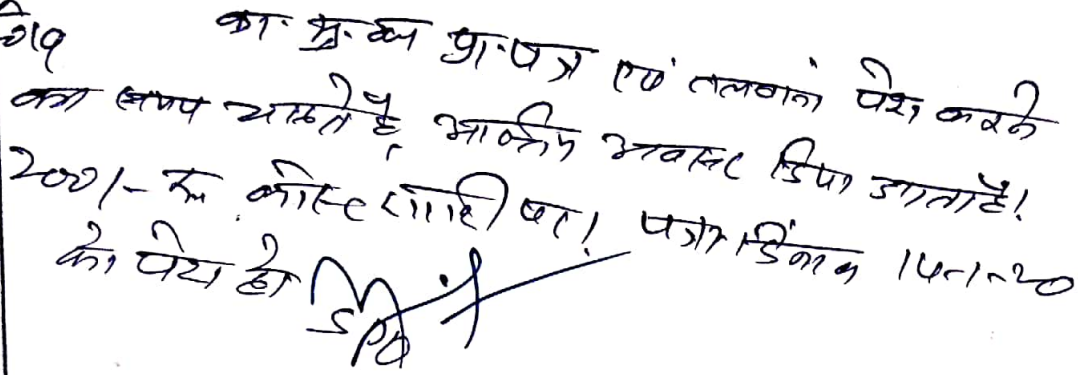 का. मु. व्य प्रा. पत्र एवं तलवाना पेश करने
का समय चाहते है, अन्तिम अवसर दिया जाता है।
200/- रू कोस्ट राशि पर। पत्रा. दिनांक 14-1-20
को पेश हो